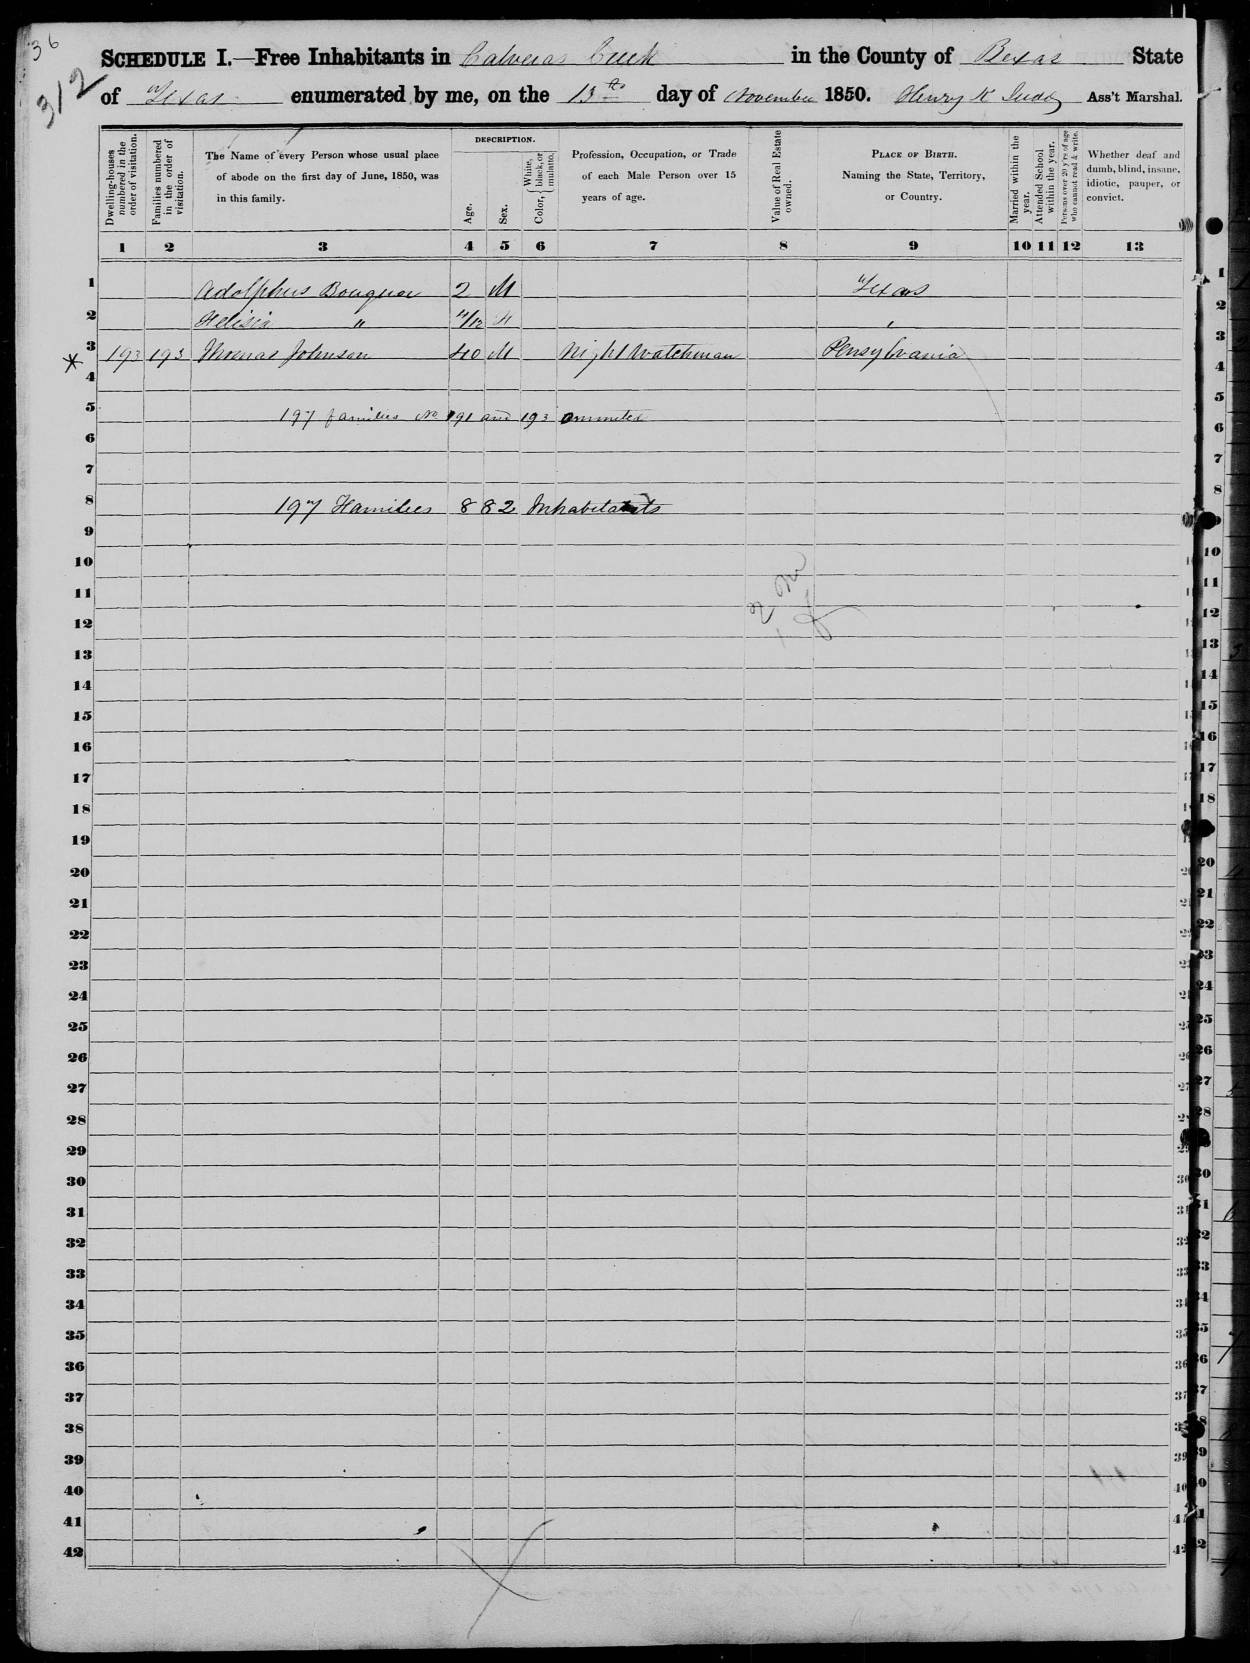 36
312
SCHEDULE I.—Free Inhabitants in Calveras Creek in the County of Bexar State
of Texas enumerated by me, on the 13th day of November 1850. Henry K Ass't Marshal.
Dwelling-houses numbered in the order of visitation.
Families numbered in the order of visitation.
The Name of every Person whose usual place of abode on the first day of June, 1850, was in this family.
DESCRIPTION.
Age.
Sex.
Color, { White, black, or mulatto.
Profession, Occupation, or Trade of each Male Person over 15 years of age.
Value of Real Estate owned.
PLACE OF BIRTH. Naming the State, Territory, or Country.
Married within the year.
Attended School within the year.
Persons over 20 y'rs of age who cannot read & write.
Whether deaf and dumb, blind, insane, idiotic, pauper, or convict.
1 2 3 4 5 6 7 8 9 10 11 12 13
1 Adolphus 2 M Texas
2 " 11/12 F "
3 193 193 Thomas Johnson 40 M Night Watchman Pensylvania
4
5 197 families No 191 and 193 ommited
6
7
8 197 Families 882 Inhabitants
9
10
11
12
13
14
15
16
17
18
19
20
21
22
23
24
25
26
27
28
29
30
31
32
33
34
35
36
37
38
39
40
41
42